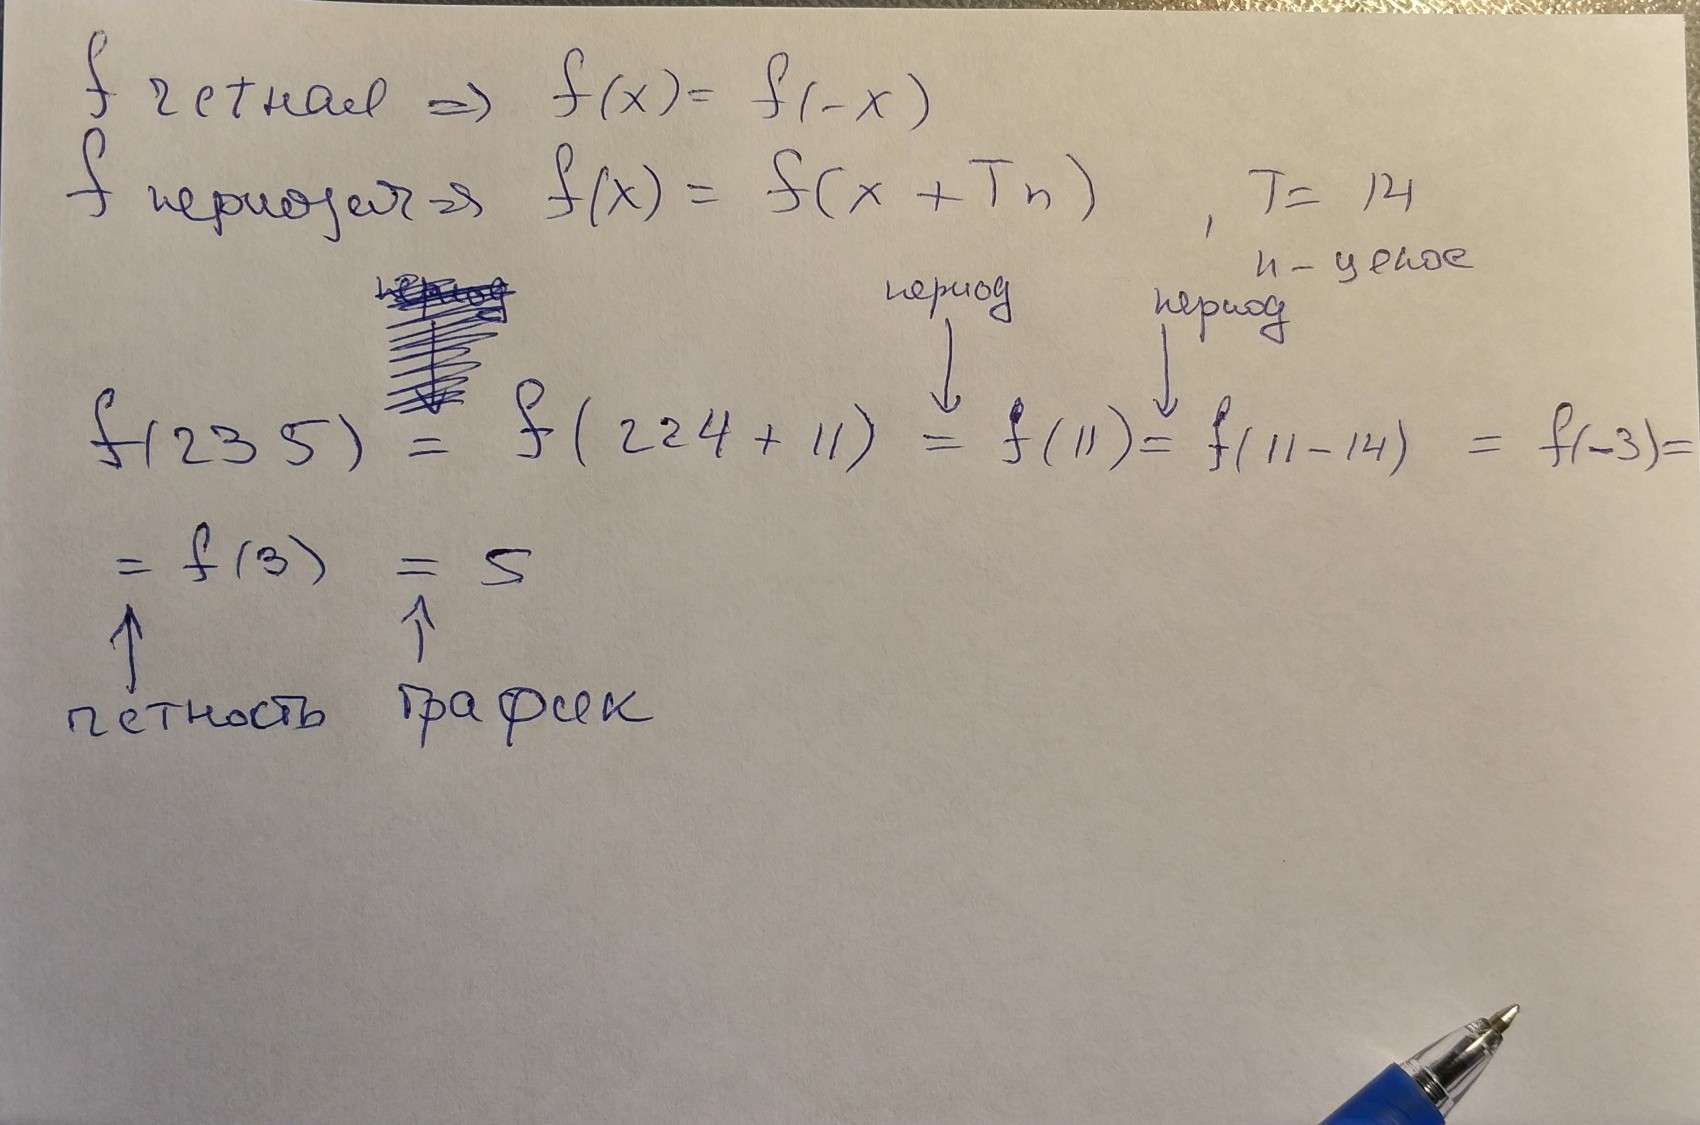 f четная => f(x) = f(-x)
f периодич => f(x) = f(x + Tn) , T = 14
n - целое
период период
f(235) = f(224 + 11) = f(11) = f(11 - 14) = f(-3) =
= f(3) = 5
четность график